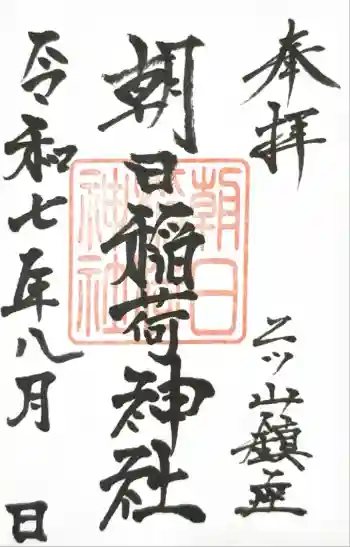 奉拝
二ツ山鎮座
朝日稲荷神社
令和七年八月 日
朝日
稲荷
神社